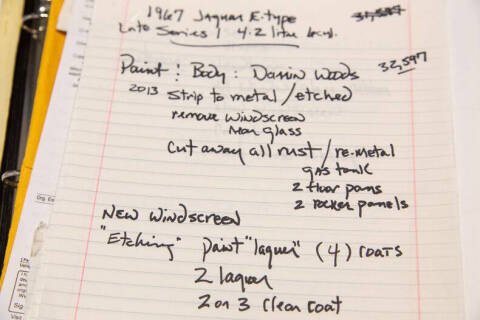 1967 Jaguar E-type
Late Series 1 4.2 litre
32,597
Paint : Body : Darrin Woods
2013 Strip to metal/etched
remove windscreen
rear glass
Cut away all rust/re-metal
gas tank
2 floor pans
2 rocker panels
New Windscreen
"Etching" paint "laquer" (4) coats
2 laquer
2 or 3 clear coat